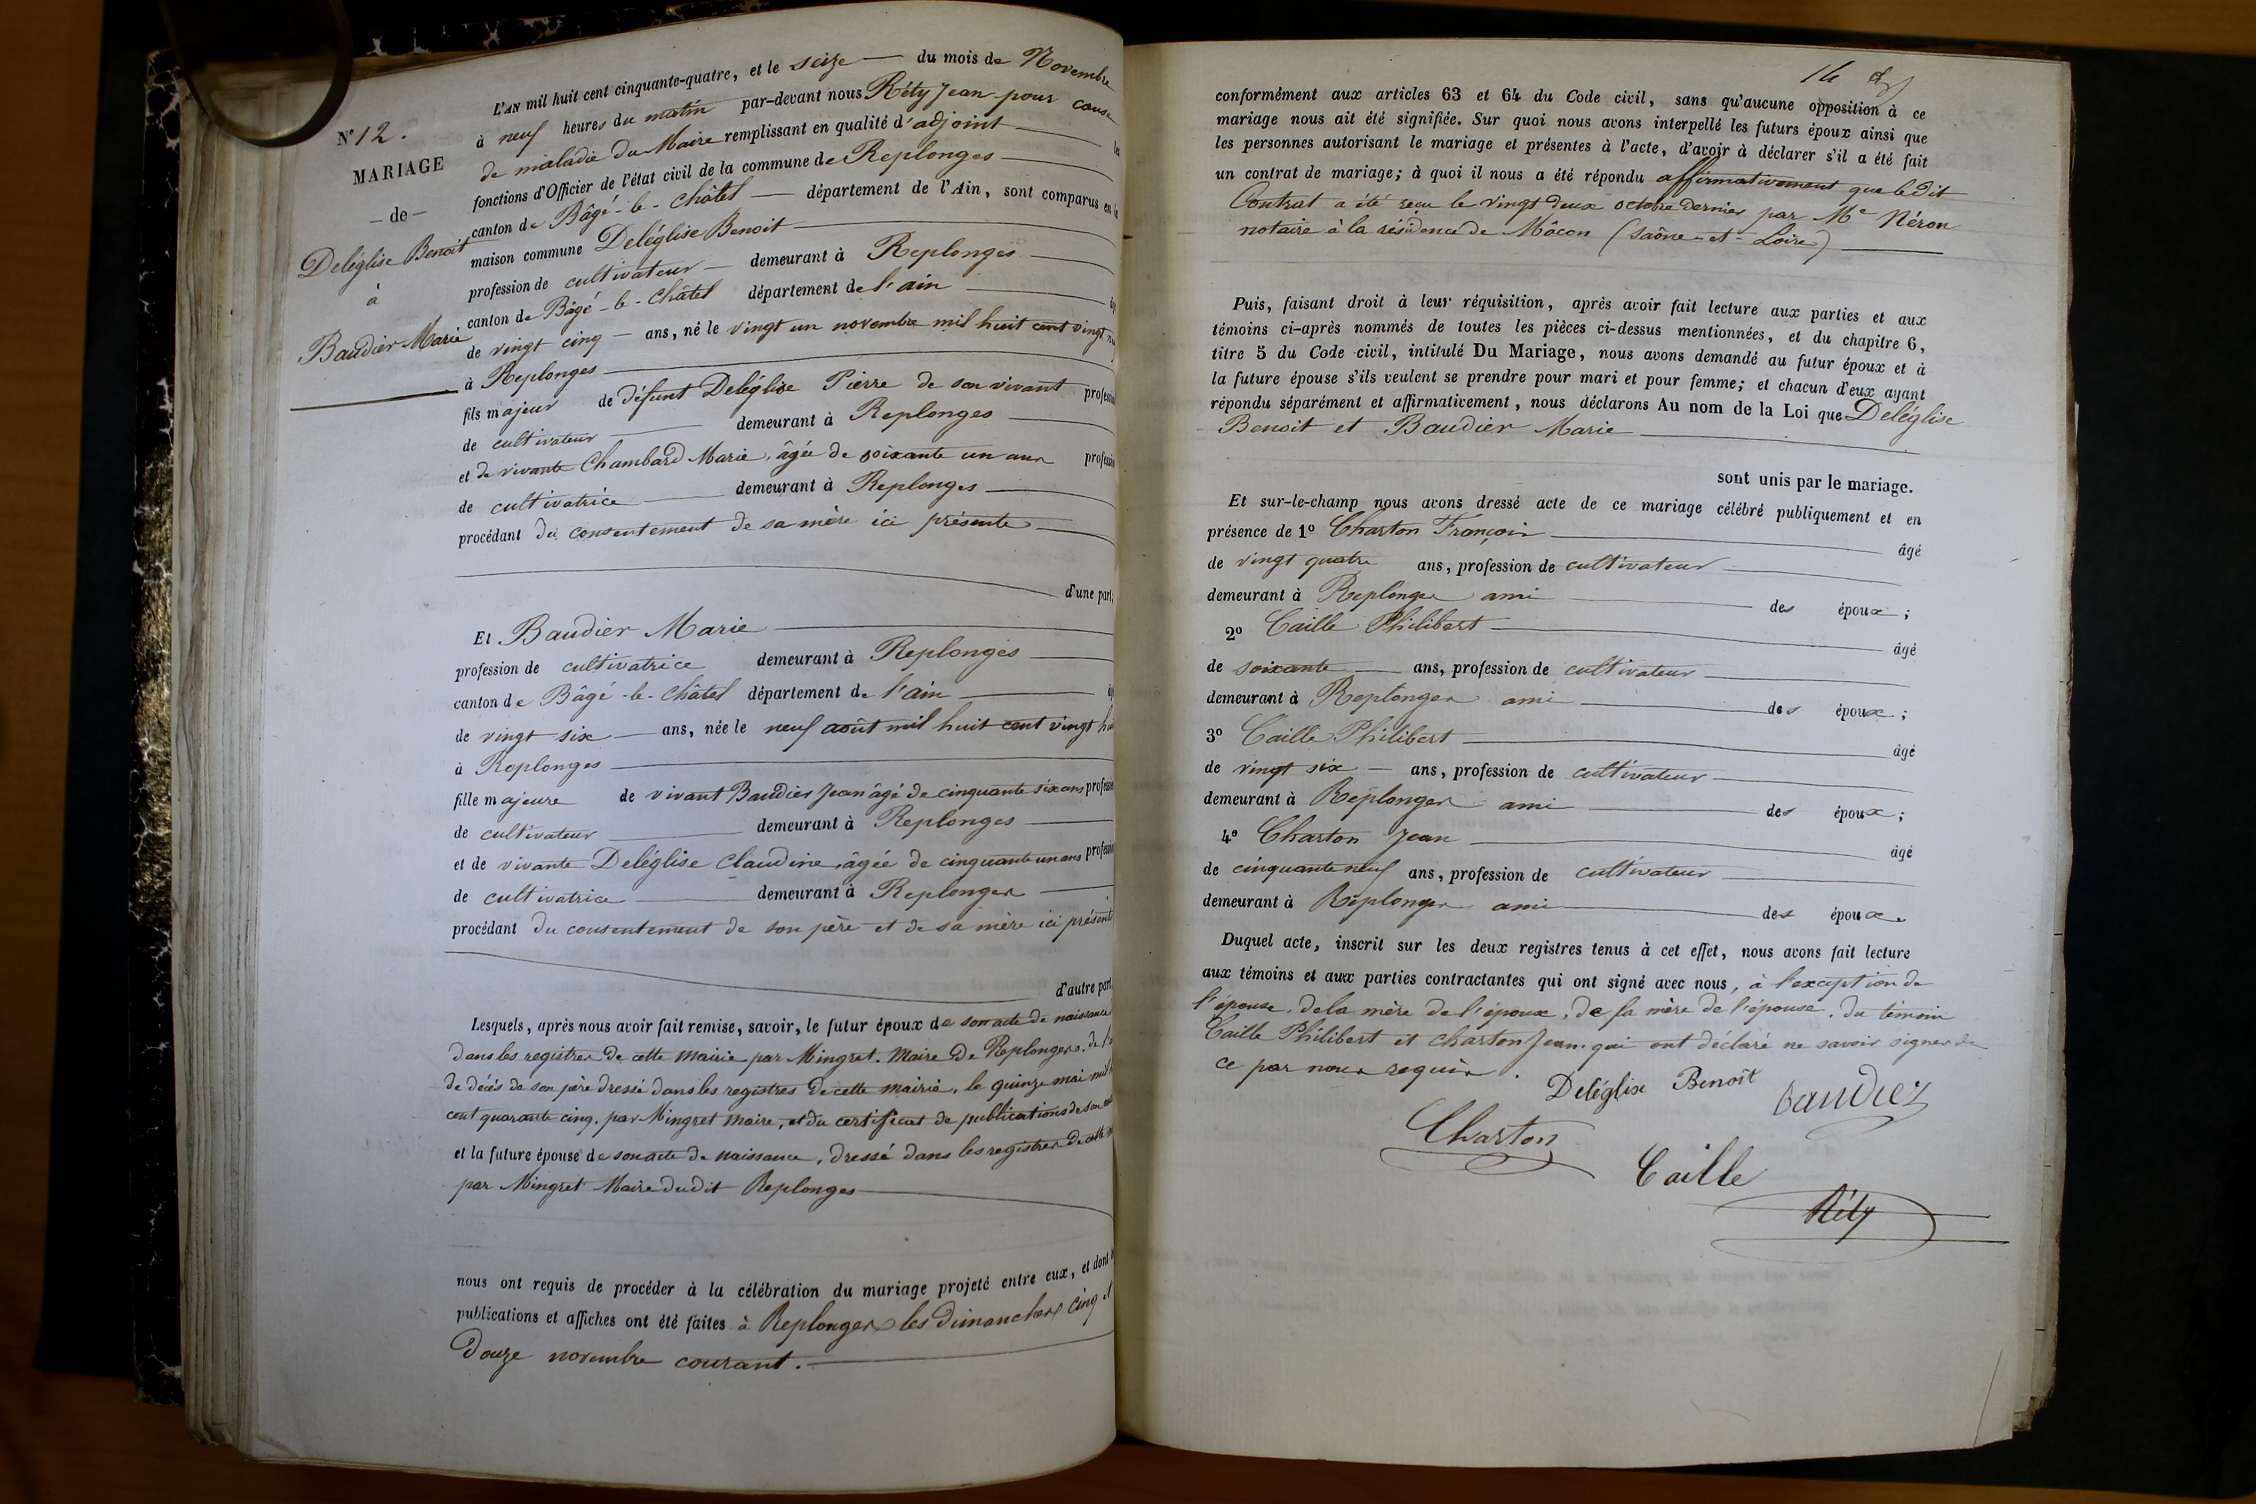 N° 12.
MARIAGE
— de —
Deléglise Benoit
à
Baudier Marie
L'AN mil huit cent cinquante-quatre, et le seize du mois de Novembre
à neuf heures du matin par-devant nous Réty Jean pour cause
de maladie du Maire remplissant en qualité d'adjoint les
fonctions d'Officier de l'état civil de la commune de Replonges
canton de Bâgé-le-Châtel département de l'Ain, sont comparus en la
maison commune Deléglise Benoit
profession de cultivateur demeurant à Replonges
canton de Bâgé-le-Châtel département de l'ain
de vingt cinq ans, né le vingt un novembre mil huit cent vingt
à Replonges
fils majeur de défunt Deléglise Pierre de son vivant profession
de cultivateur demeurant à Replonges
et de vivante Chambard Marie, âgée de soixante un ans profession
de cultivatrice demeurant à Replonges
procédant du consentement de sa mère ici présente
d'une part;
Et Baudier Marie
profession de cultivatrice demeurant à Replonges
canton de Bâgé-le-Châtel département de l'ain
de vingt six ans, née le neuf août mil huit cent vingt
à Replonges
fille majeure de vivant Baudier Jean âgé de cinquante six ans profession
de cultivateur demeurant à Replonges
et de vivante Deléglise Claudine, âgée de cinquante un ans profession
de cultivatrice demeurant à Replonges
procédant du consentement de son père et de sa mère ici présents
d'autre part
Lesquels, après nous avoir fait remise, savoir, le futur époux de son acte de naissance
dans les registres de cette mairie par Mingret. Maire de Replonges. de
de décès de son père dressé dans les registres de cette mairie, le quinze mai mil
cent quarante cinq. par Mingret maire, et du certificat de publications de son
et la future épouse de son acte de naissance, dressé dans les registres de cette
par Mingret Maire dudit Replonges
nous ont requis de procéder à la célébration du mariage projeté entre eux, et dont
publications et affiches ont été faites à Replonges les dimanches cinq et
Douze novembre courant.
14
conformément aux articles 63 et 64 du Code civil, sans qu'aucune opposition à ce
mariage nous ait été signifiée. Sur quoi nous avons interpellé les futurs époux ainsi que
les personnes autorisant le mariage et présentes à l'acte, d'avoir à déclarer s'il a été fait
un contrat de mariage; à quoi il nous a été répondu affirmativement que ledit
Contrat a été reçu le vingt deux octobre dernier par Me Néron
notaire à la résidence de Mâcon (Saône-et-Loire)
Puis, faisant droit à leur réquisition, après avoir fait lecture aux parties et aux
témoins ci-après nommés de toutes les pièces ci-dessus mentionnées, et du chapitre 6,
titre 5 du Code civil, intitulé Du Mariage, nous avons demandé au futur époux et à
la future épouse s'ils veulent se prendre pour mari et pour femme; et chacun d'eux ayant
répondu séparément et affirmativement, nous déclarons Au nom de la Loi que Deléglise
Benoit et Baudier Marie
sont unis par le mariage.
Et sur-le-champ nous avons dressé acte de ce mariage célébré publiquement et en
présence de 1° Charton François âgé
de vingt quatre ans, profession de cultivateur
demeurant à Replonges ami des époux;
2° Caille Philibert âgé
de soixante ans, profession de cultivateur
demeurant à Replonges ami des époux;
3° Caille Philibert âgé
de vingt six ans, profession de cultivateur
demeurant à Replonges ami des époux;
4° Charton Jean âgé
de cinquante neuf ans, profession de cultivateur
demeurant à Replonges ami des époux.
Duquel acte, inscrit sur les deux registres tenus à cet effet, nous avons fait lecture
aux témoins et aux parties contractantes qui ont signé avec nous, à l'exception de
l'épouse, de la mère de l'époux, de la mère de l'épouse, du témoin
Caille Philibert et charton Jean. qui ont déclaré ne savoir signer de
ce par nous requis.
Deléglise Benoît Baudier
Charton
Caille
Réty